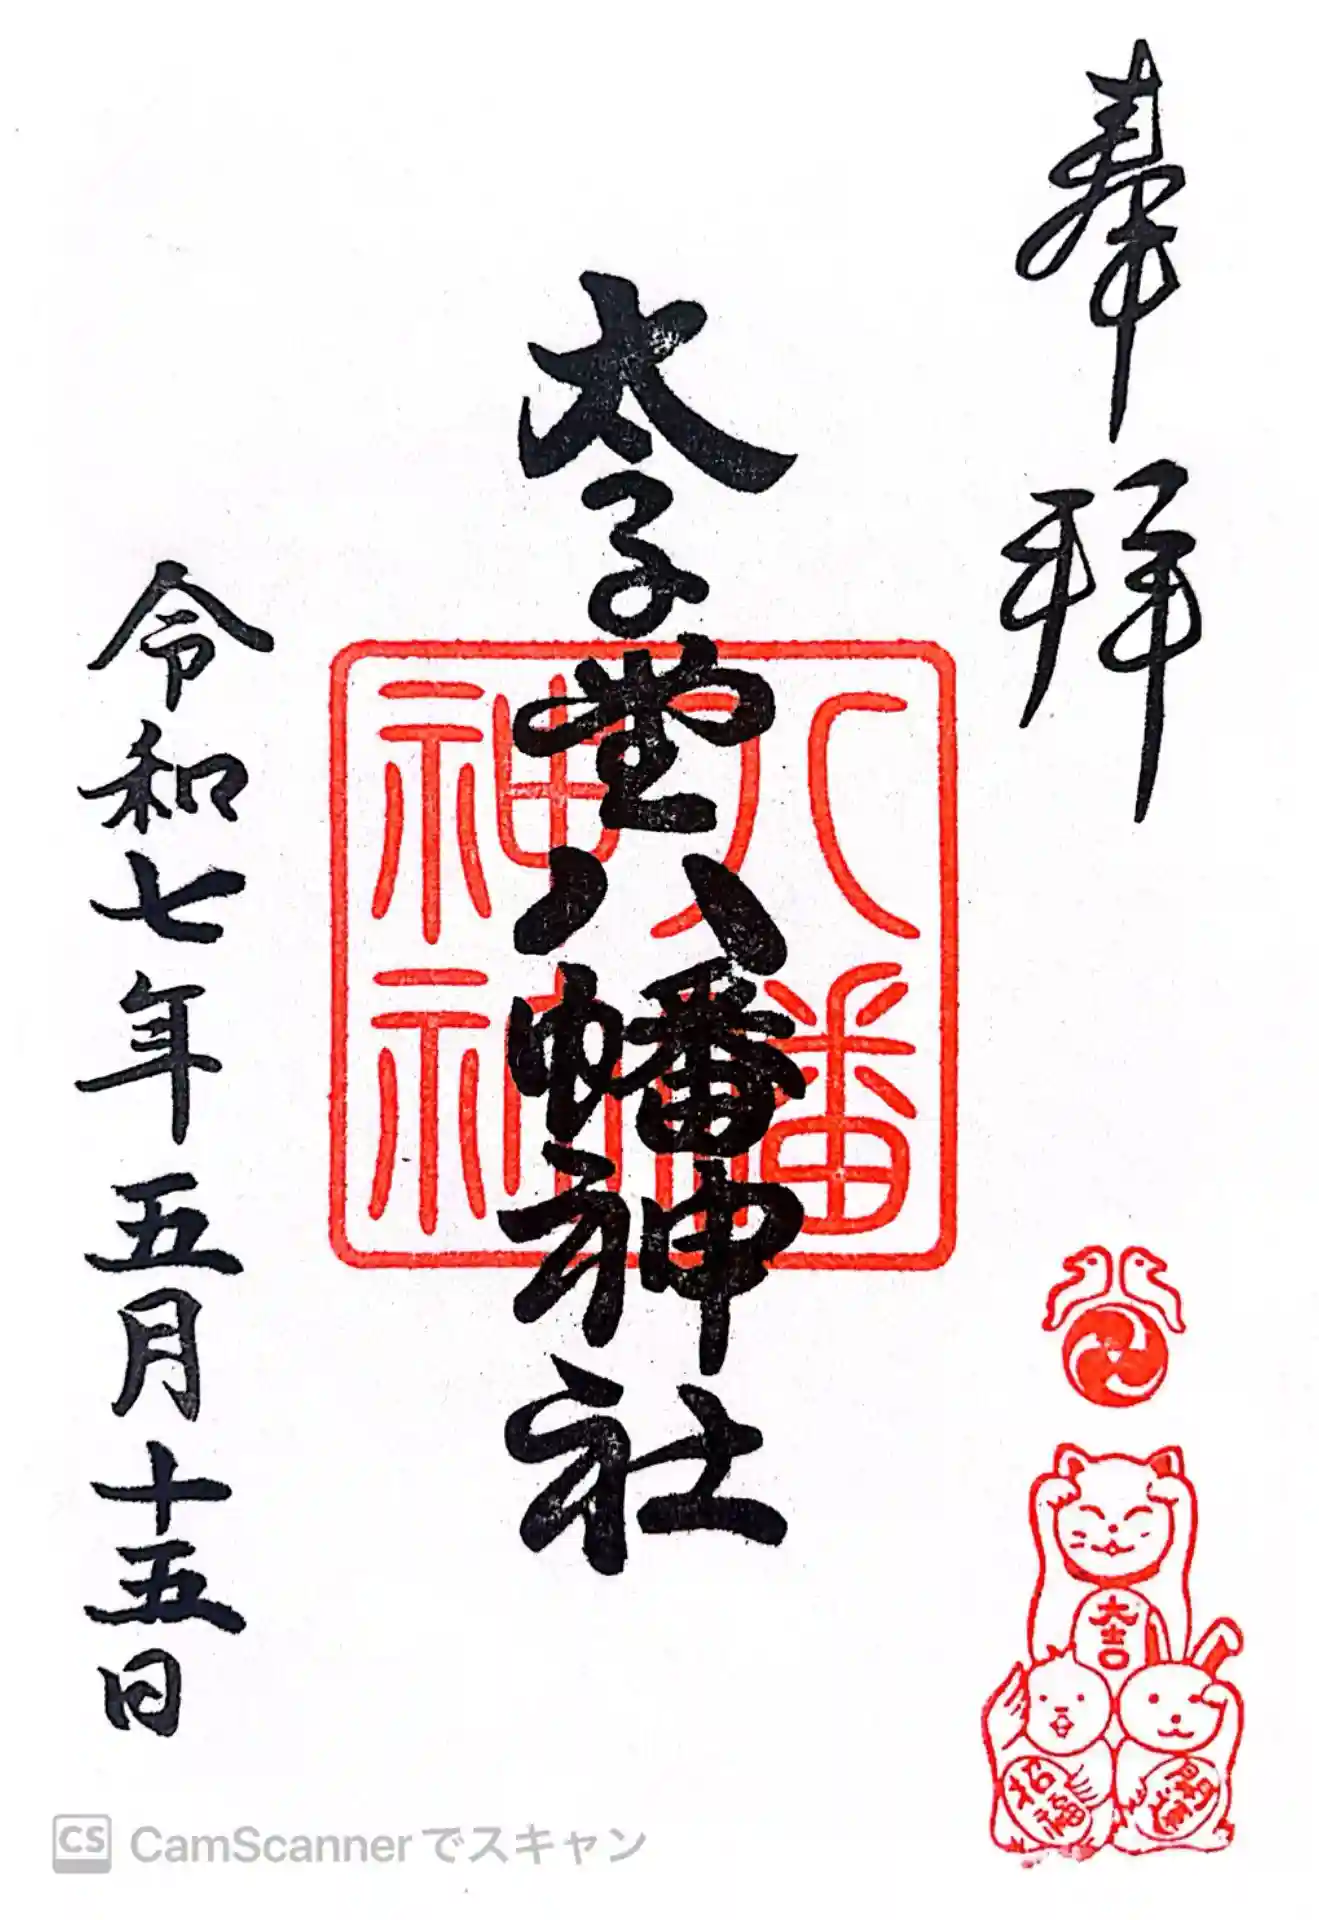 奉拝
太子堂八幡神社
八幡
神社
令和七年五月十五日
大吉
招福
開運
CS CamScannerでスキャン